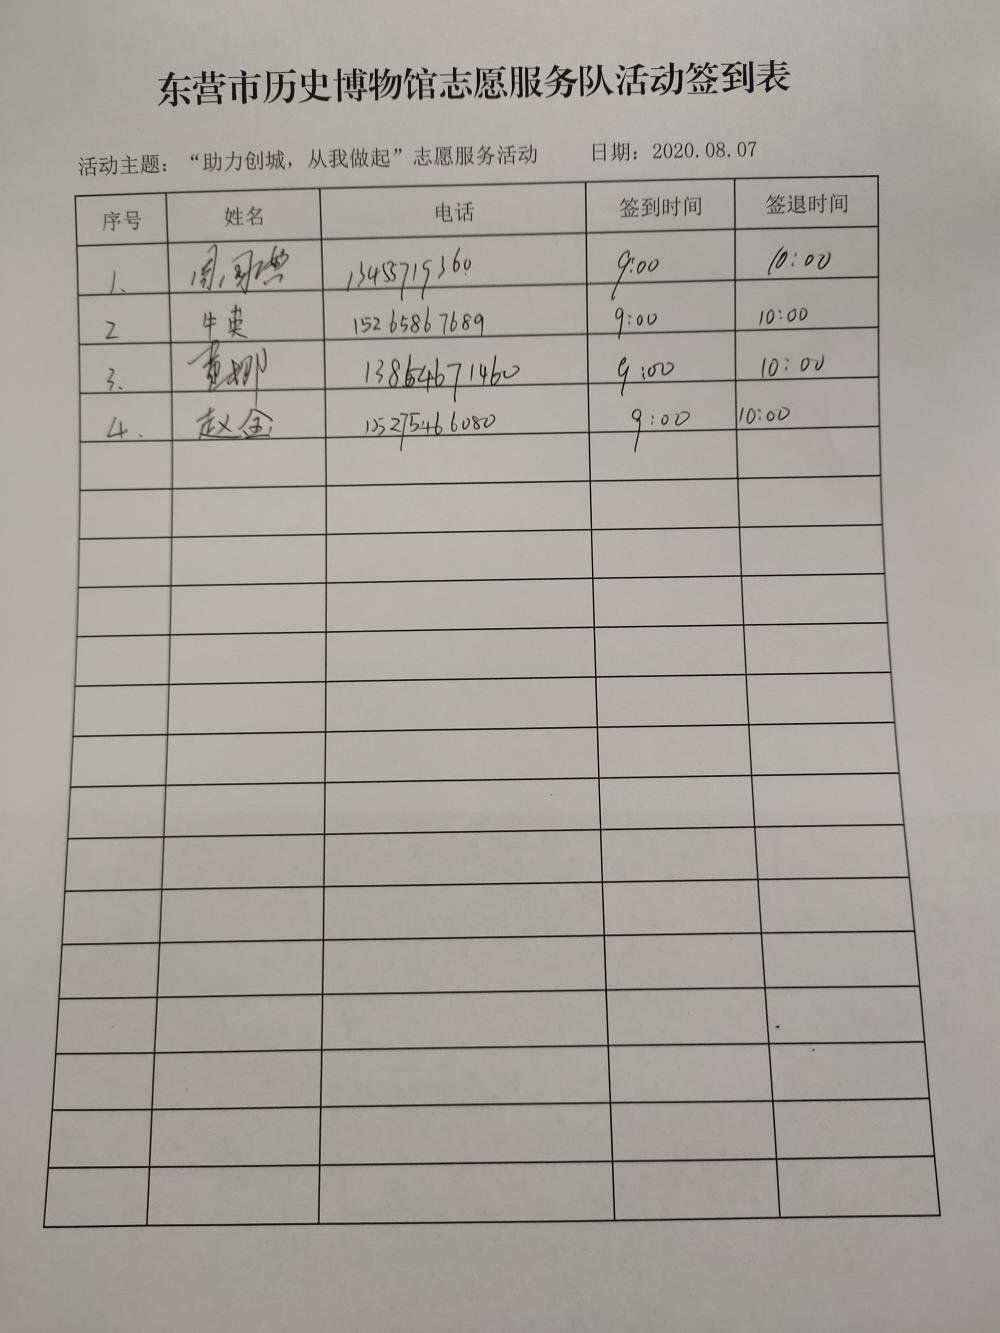 东营市历史博物馆志愿服务队活动签到表
活动主题：“助力创城，从我做起”志愿服务活动 日期：2020.08.07
序号 姓名 电话 签到时间 签退时间
1. 13455719360 9:00 10:00
2 牛英 15265867689 9:00 10:00
3. 13864671460 9:00 10:00
4. 赵金 15275466080 9:00 10:00